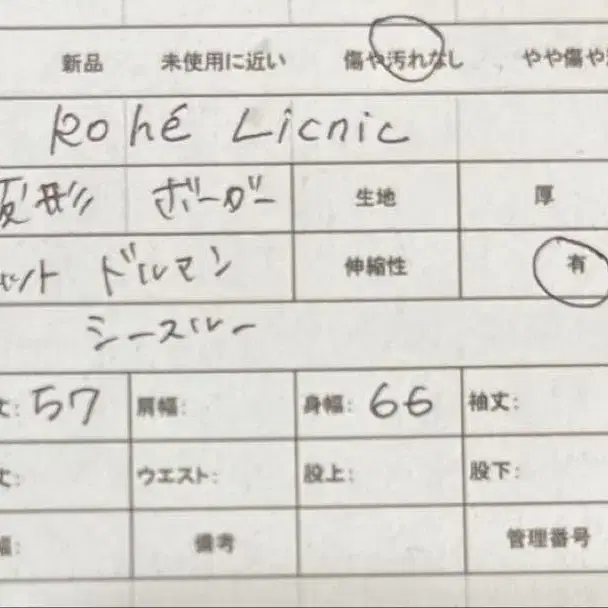 新品 未使用に近い 傷や汚れなし やや傷や
Rohé Licnic
変形 ボーダー 生地 厚
ット ドルマン 伸縮性 有
シースルー
丈: 57 肩幅: 身幅: 66 袖丈:
丈: ウエスト: 股上: 股下:
幅: 備考 管理番号